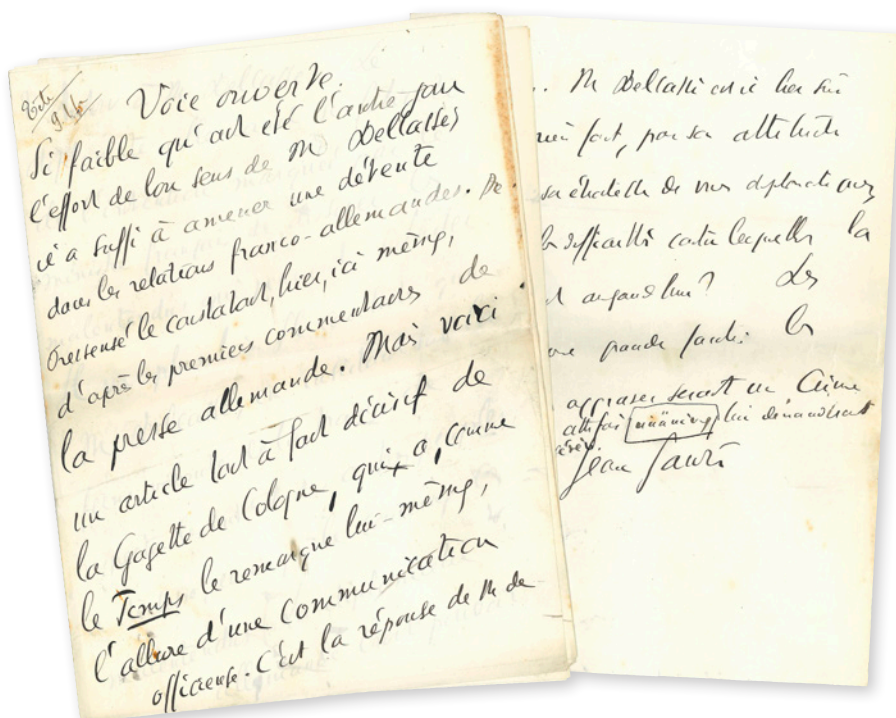 Voie ouverte.
Si faible qu'ait été l'autre jour
l'effort de bon sens de M Delcassé,
il a suffi à amener une détente
dans les relations franco-allemandes. De
Pressensé le constatait, hier, ici même,
d'après les premiers commentaires de
la presse allemande. Mais voici
un article tout à fait décisif de
la Gazette de Cologne, qui a, comme
le Temps le remarque lui-même,
l'allure d'une communication
officieuse. C'est la réponse de M de
M Delcassé
fort, par son attitude
de nos diplomates
les difficultés contre lesquelles la
aujourd'hui? Les
grande partie. Les
aggraver serait un crime
Jean Jaurès